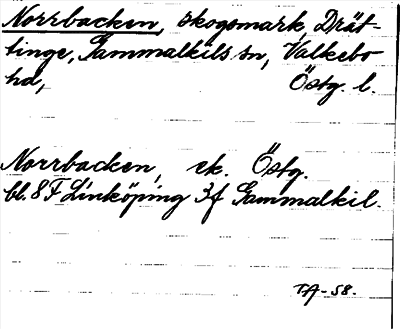 Norrbacken, skogsmark, Drät-
tinge, Gammalkils sn, Valkebo
hd, Östg. l.
Norrbacken, ek. Östg.
bl. 8 F Linköping 3f Gammalkil.
TA-58.